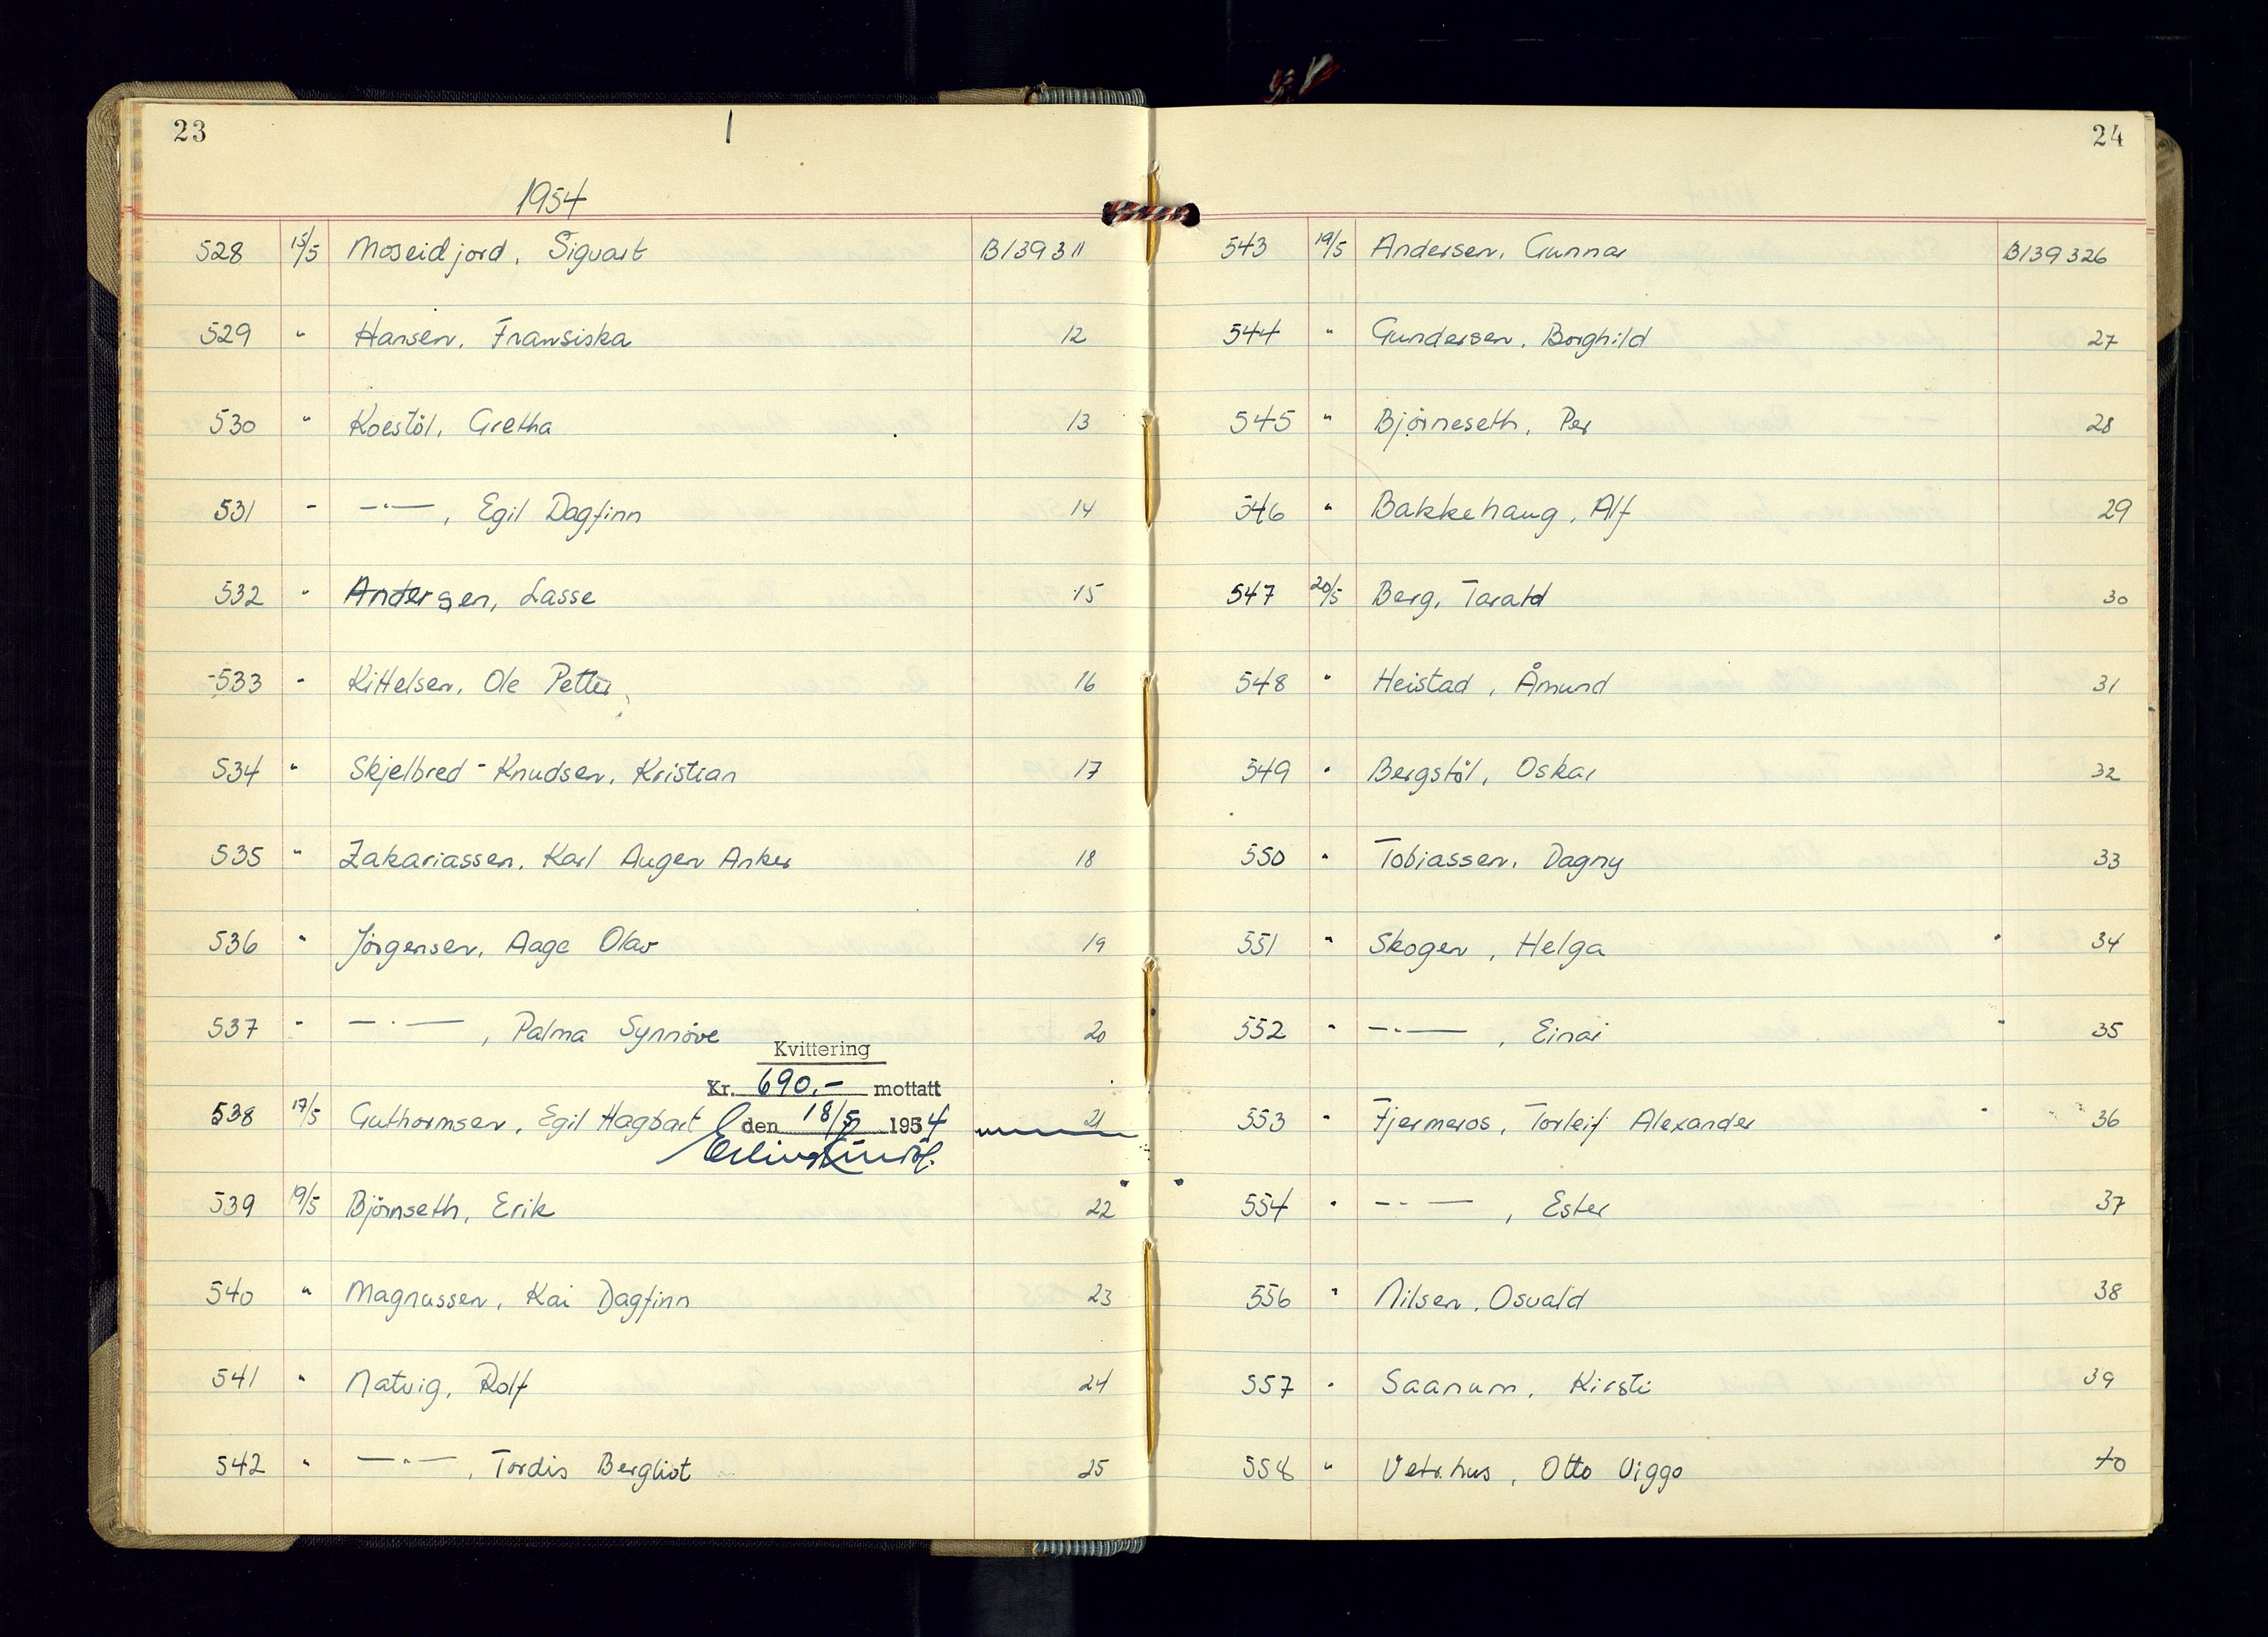 23
1954
528 15/5 Moseidjord, Sigvart B139311
529 " Hansen, Fransiska 12
530 " Koestöl, Gretha 13
531 - —·—, Egil Dagfinn 14
532 " Andersen, Lasse 15
533 " Kittelsen, Ole Petter 16
534 " Skjelbred-Knudsen, Kristian 17
535 " Zakariassen, Karl Augen Anker 18
536 " Jörgensen, Aage Olav 19
537 " —·—, Palma Synnöve 20
Kvittering
Kr. 690.- mottatt
538 17/5 Guthormsen, Egil Hagbart den 18/5 1954 21
539 19/5 Björnseth, Erik 22
540 " Magnussen, Kai Dagfinn 23
541 " Natvig, Rolf 24
542 " —"—, Tordis Bergliot 25
24
543 19/5 Andersen, Gunnar B139326
544 " Gundersen, Borghild 27
545 " Björneseth, Per 28
546 " Bakkehaug, Alf 29
547 20/5 Berg, Tarald 30
548 " Heistad, Åmund 31
549 " Bergstöl, Oskar 32
550 " Tobiassen, Dagny 33
551 " Skogen, Helga 34
552 " —·—, Einar 35
553 " Fjermeros, Torleif Alexander 36
554 " —·—, Ester 37
556 " Nilsen, Osvald 38
557 " Saanum, Kirsti 39
558 " Vetrhus, Otto Viggo 40